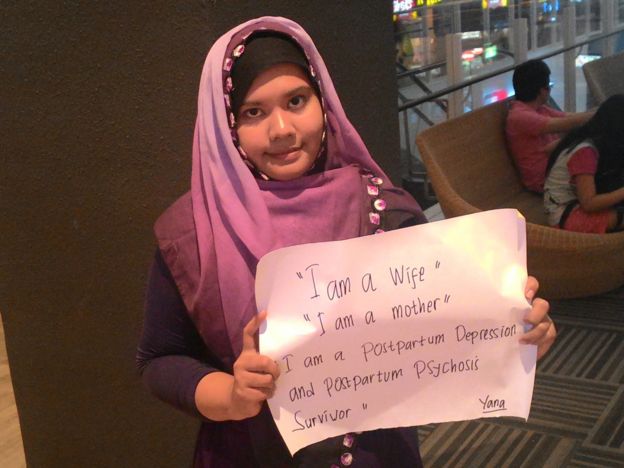 "I am a Wife"
"I am a mother"
"I am a Postpartum Depression
and Postpartum Psychosis
Survivor"
Yana